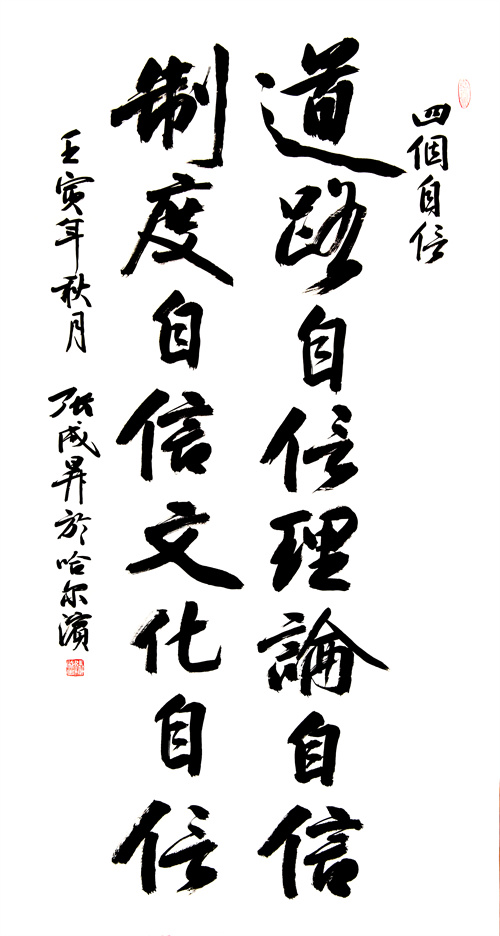 四個自信
道路自信理論自信
制度自信文化自信
壬寅年秋月 張成昇於哈尔濱